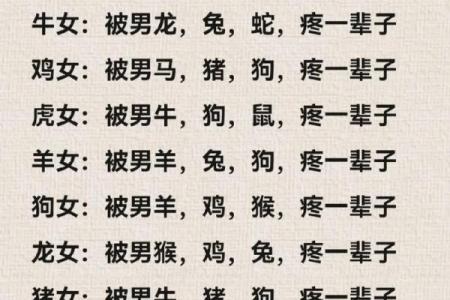 牛女：被男龙，兔，蛇，疼一辈子
鸡女：被男马，猪，狗，疼一辈子
虎女：被男牛，狗，鼠，疼一辈子
羊女：被男羊，兔，狗，疼一辈子
狗女：被男羊，鸡，猴，疼一辈子
龙女：被男猴，鸡，兔，疼一辈子
猪女：被男牛，猪，狗，疼一辈子